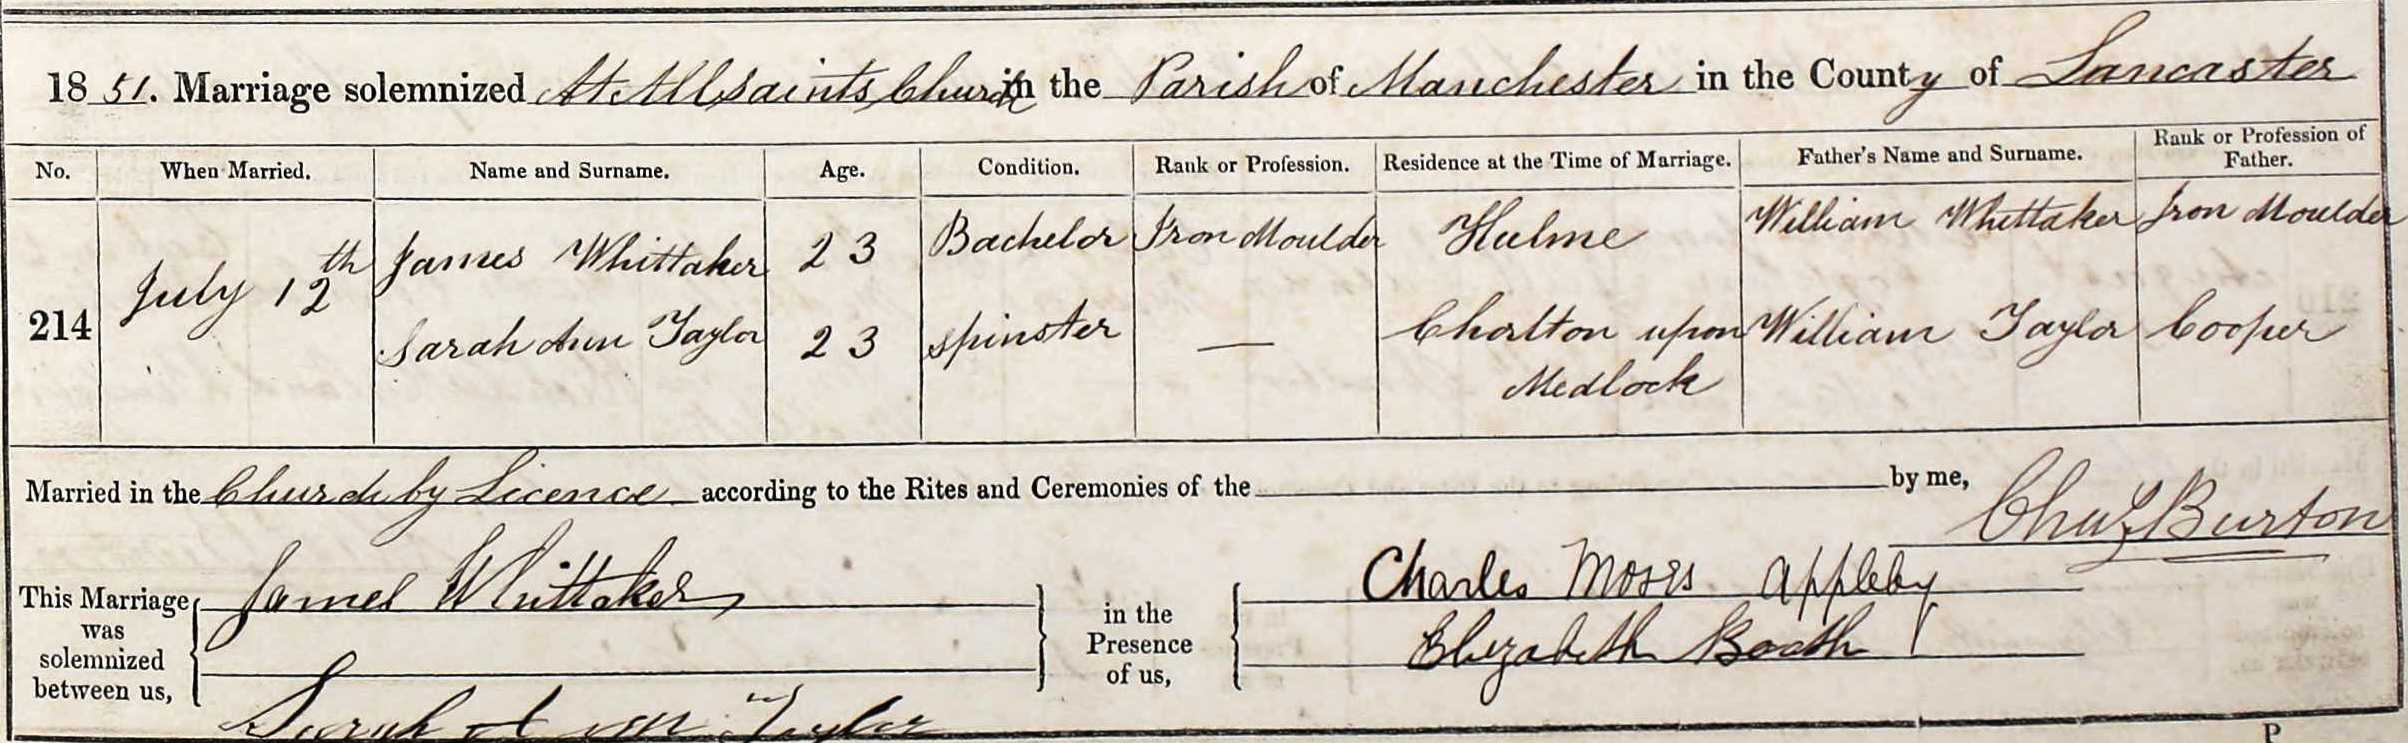 1851. Marriage solemnized At All Saints Church in the Parish of Manchester in the County of Lancaster
No. When Married. Name and Surname. Age. Condition. Rank or Profession. Residence at the Time of Marriage. Father's Name and Surname. Rank or Profession of Father.
214 July 12th James Whittaker 23 Bachelor Iron Moulder Hulme William Whittaker Iron Moulder
Sarah Ann Taylor 23 spinster — Chorlton upon Medlock William Taylor Cooper
Married in the Church by Licence according to the Rites and Ceremonies of the by me, Chas Burton
This Marriage was solemnized between us, James Whittaker
Sarah Ann Taylor
in the Presence of us, Charles Moses Appleby
Elizabeth Booth
P